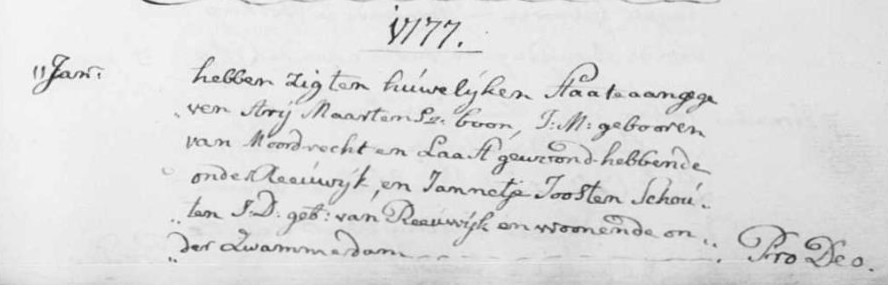 1777.
11 Jan: hebben zig ten húwelijken Staate aangege
ven Arij Maartensz: boon, J: M: gebooren
van Moordrecht en Laast gewoond hebbende
onder Reeúwijk, en Jannetje Joosten Schoú„
„ten J: D: geb: van Reeúwijk en woonende on„
„der Zwammerdam Pro Deo.